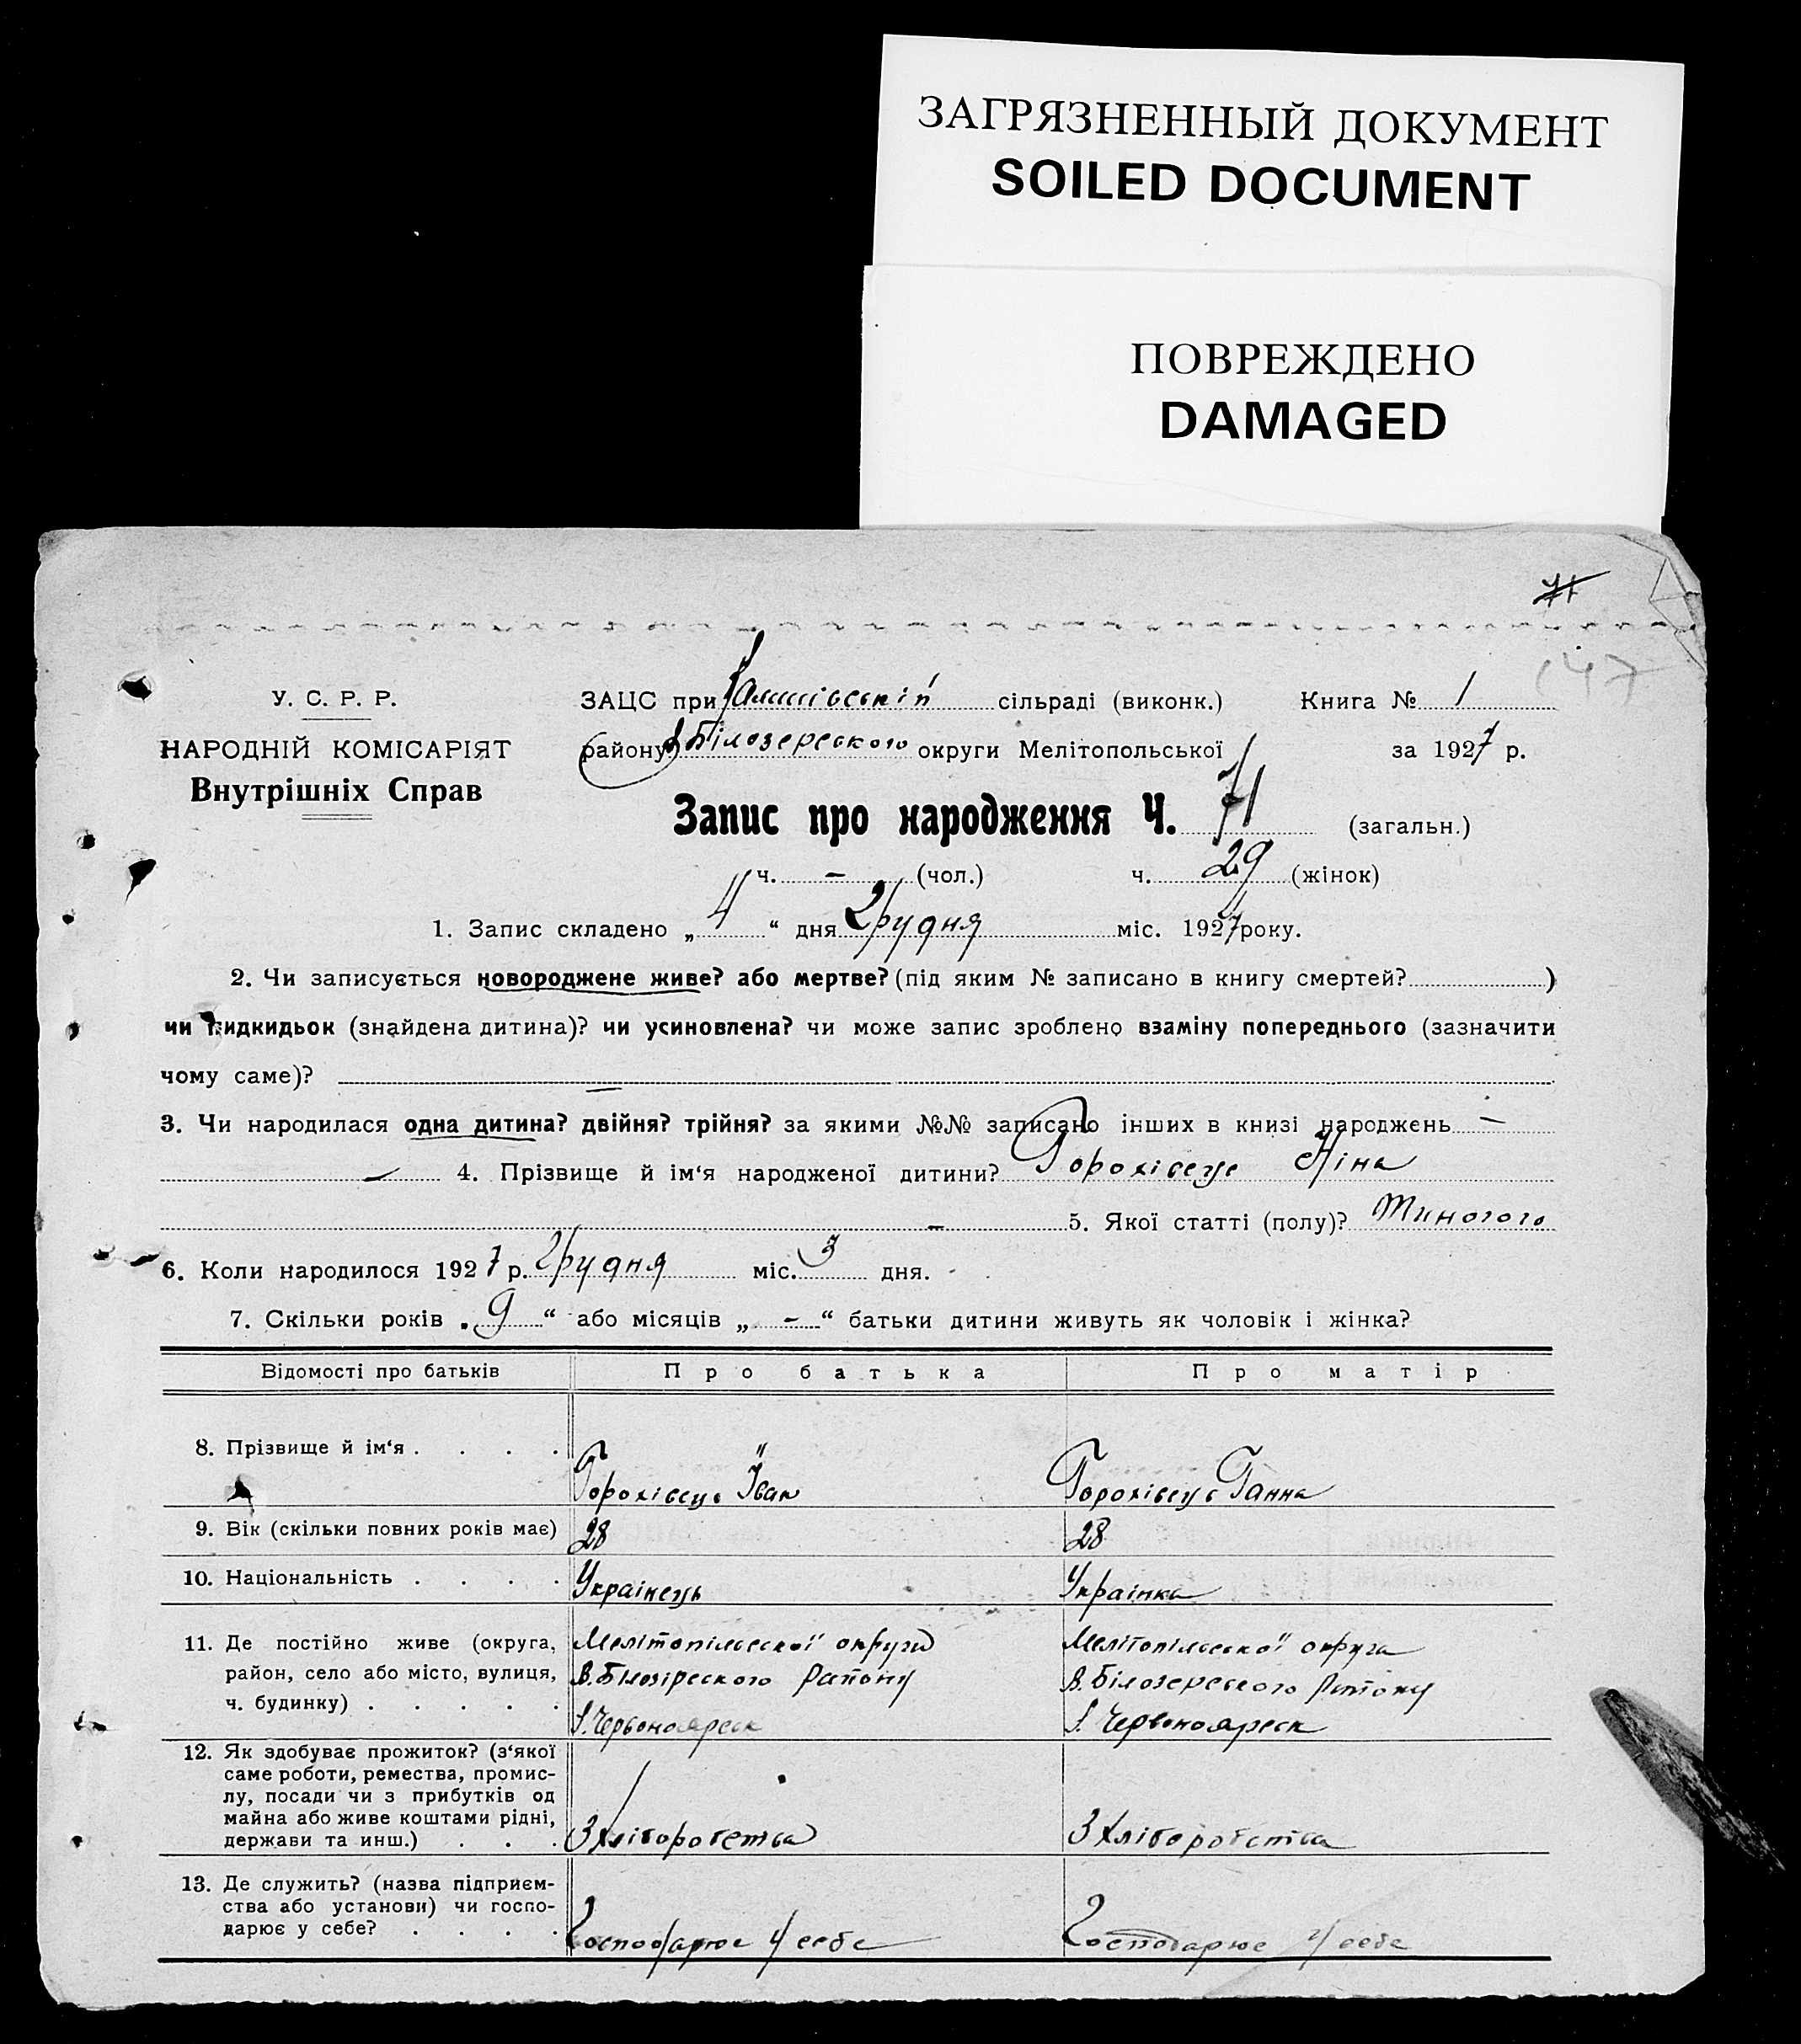 ЗАГРЯЗНЕННЫЙ ДОКУМЕНТ
SOILED DOCUMENT
ПОВРЕЖДЕНО
DAMAGED
71
147
У. С. Р. Р. ЗАЦС при сільраді (виконк.) Книга № 1
НАРОДНІЙ КОМІСАРІЯТ району В Білозереского округи Мелітопольської за 1927 р.
Внутрішніх Справ
Запис про народження Ч. 71 (загальн.)
ч. – (чол.) ч. 29 (жінок)
1. Запис складено „ 4 “ дня Грудня міс. 1927 року.
2. Чи записується новороджене живе? або мертве? (під яким № записано в книгу смертей? )
чи підкидьок (знайдена дитина)? чи усиновлена? чи може запис зроблено взаміну попереднього (зазначити
чому саме)? —
3. Чи народилася одна дитина? двійня? трійня? за якими №№ записано інших в книзі народжень –
– 4. Прізвище й ім‘я народженої дитини? Горохівець Ніна
– 5. Якої статті (полу)? Жиногого
6. Коли народилося 1927 р. Грудня міс. 3 дня.
7. Скільки років „ 9 “ або місяців „ - “ батьки дитини живуть як чоловік і жінка?
Відомості про батьків Про батька Про матір
8. Прізвище й ім‘я . . . . Горохівець Іван Горохівець Ганна
9. Вік (скільки повних років має) 28 28
10. Національність . . . . Украінець Украінка
11. Де постійно живе (округа, Мелітопільскої округи Мелітопільської округа
район, село або місто, вулиця, В. Білозіреского Району В. Білозереского Району
ч. будинку) . . . . . С. Червонояреск С. Червонояреск
12. Як здобуває прожиток? (з‘якої
саме роботи, ремества, промис-
лу, посади чи з прибутків од
майна або живе коштами рідні,
держави та инш.) . . . З хліборобства З хліборобства
13. Де служить? (назва підприєм-
ства або установи) чи госпо-
дарює у себе? . . . . Господарює у себе Господарює у себе